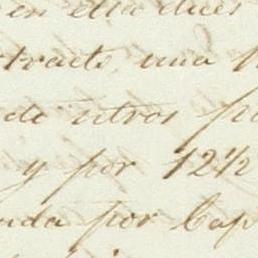 en ella dues
tracto, una
de otros po
y por 12½
nda por Cap